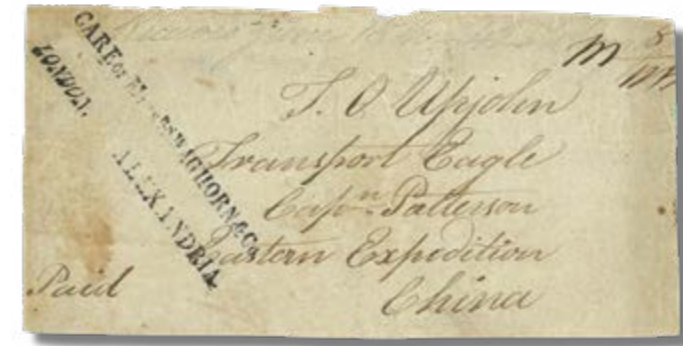 CARE OF MESSRS WAGHORN & Co
ALEXANDRIA
LONDON.
M 8
T. O. Upjohn
Transport Eagle
Capn. Patterson
Eastern Expedition
China
Paid